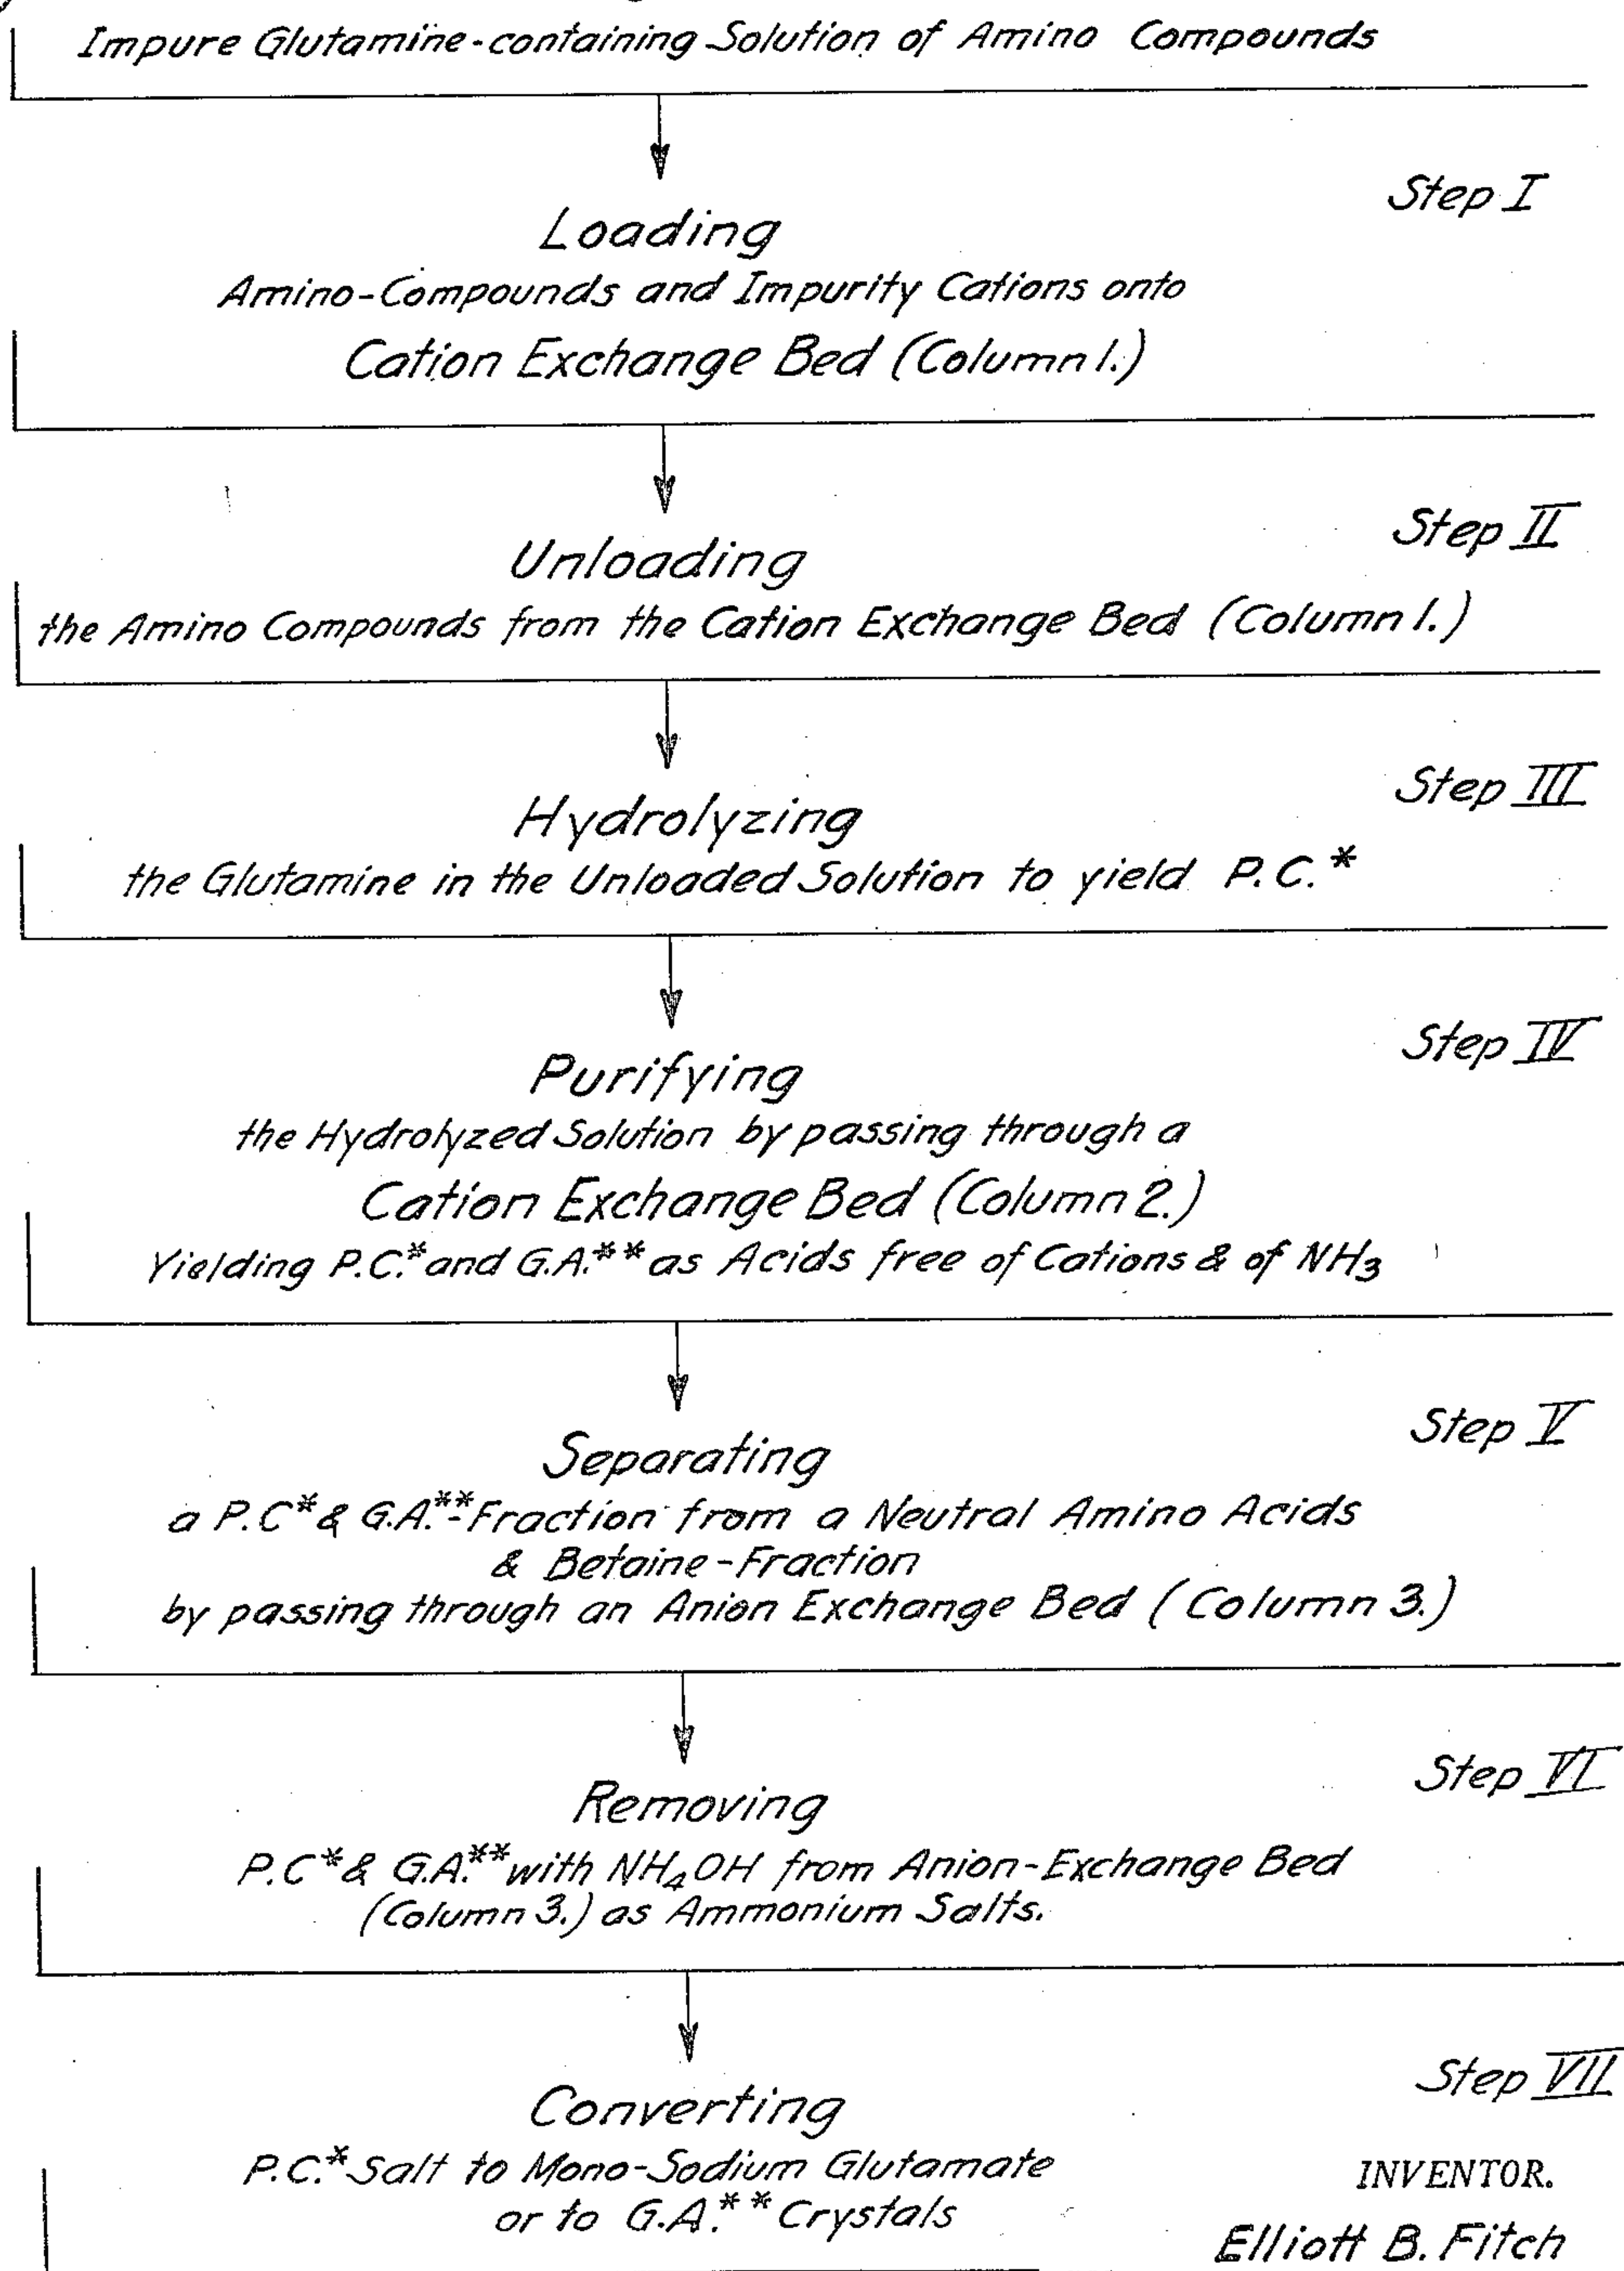 Impure Glutamine-containing Solution of Amino Compounds
Step I
Loading
Amino-Compounds and Impurity Cations onto
Cation Exchange Bed (Column 1.)
Step II
Unloading
the Amino Compounds from the Cation Exchange Bed (Column 1.)
Step III
Hydrolyzing
the Glutamine in the Unloaded Solution to yield P.C.*
Step IV
Purifying
the Hydrolyzed Solution by passing through a
Cation Exchange Bed (Column 2.)
Yielding P.C.* and G.A.** as Acids free of Cations & of NH3
Step V
Separating
a P.C* & G.A.**-Fraction from a Neutral Amino Acids
& Betaine-Fraction
by passing through an Anion Exchange Bed (Column 3.)
Step VI
Removing
P.C* & G.A.** with NH4OH from Anion-Exchange Bed
(Column 3.) as Ammonium Salts.
Step VII
Converting
P.C.* Salt to Mono-Sodium Glutamate
or to G.A.** Crystals
INVENTOR.
Elliott B. Fitch